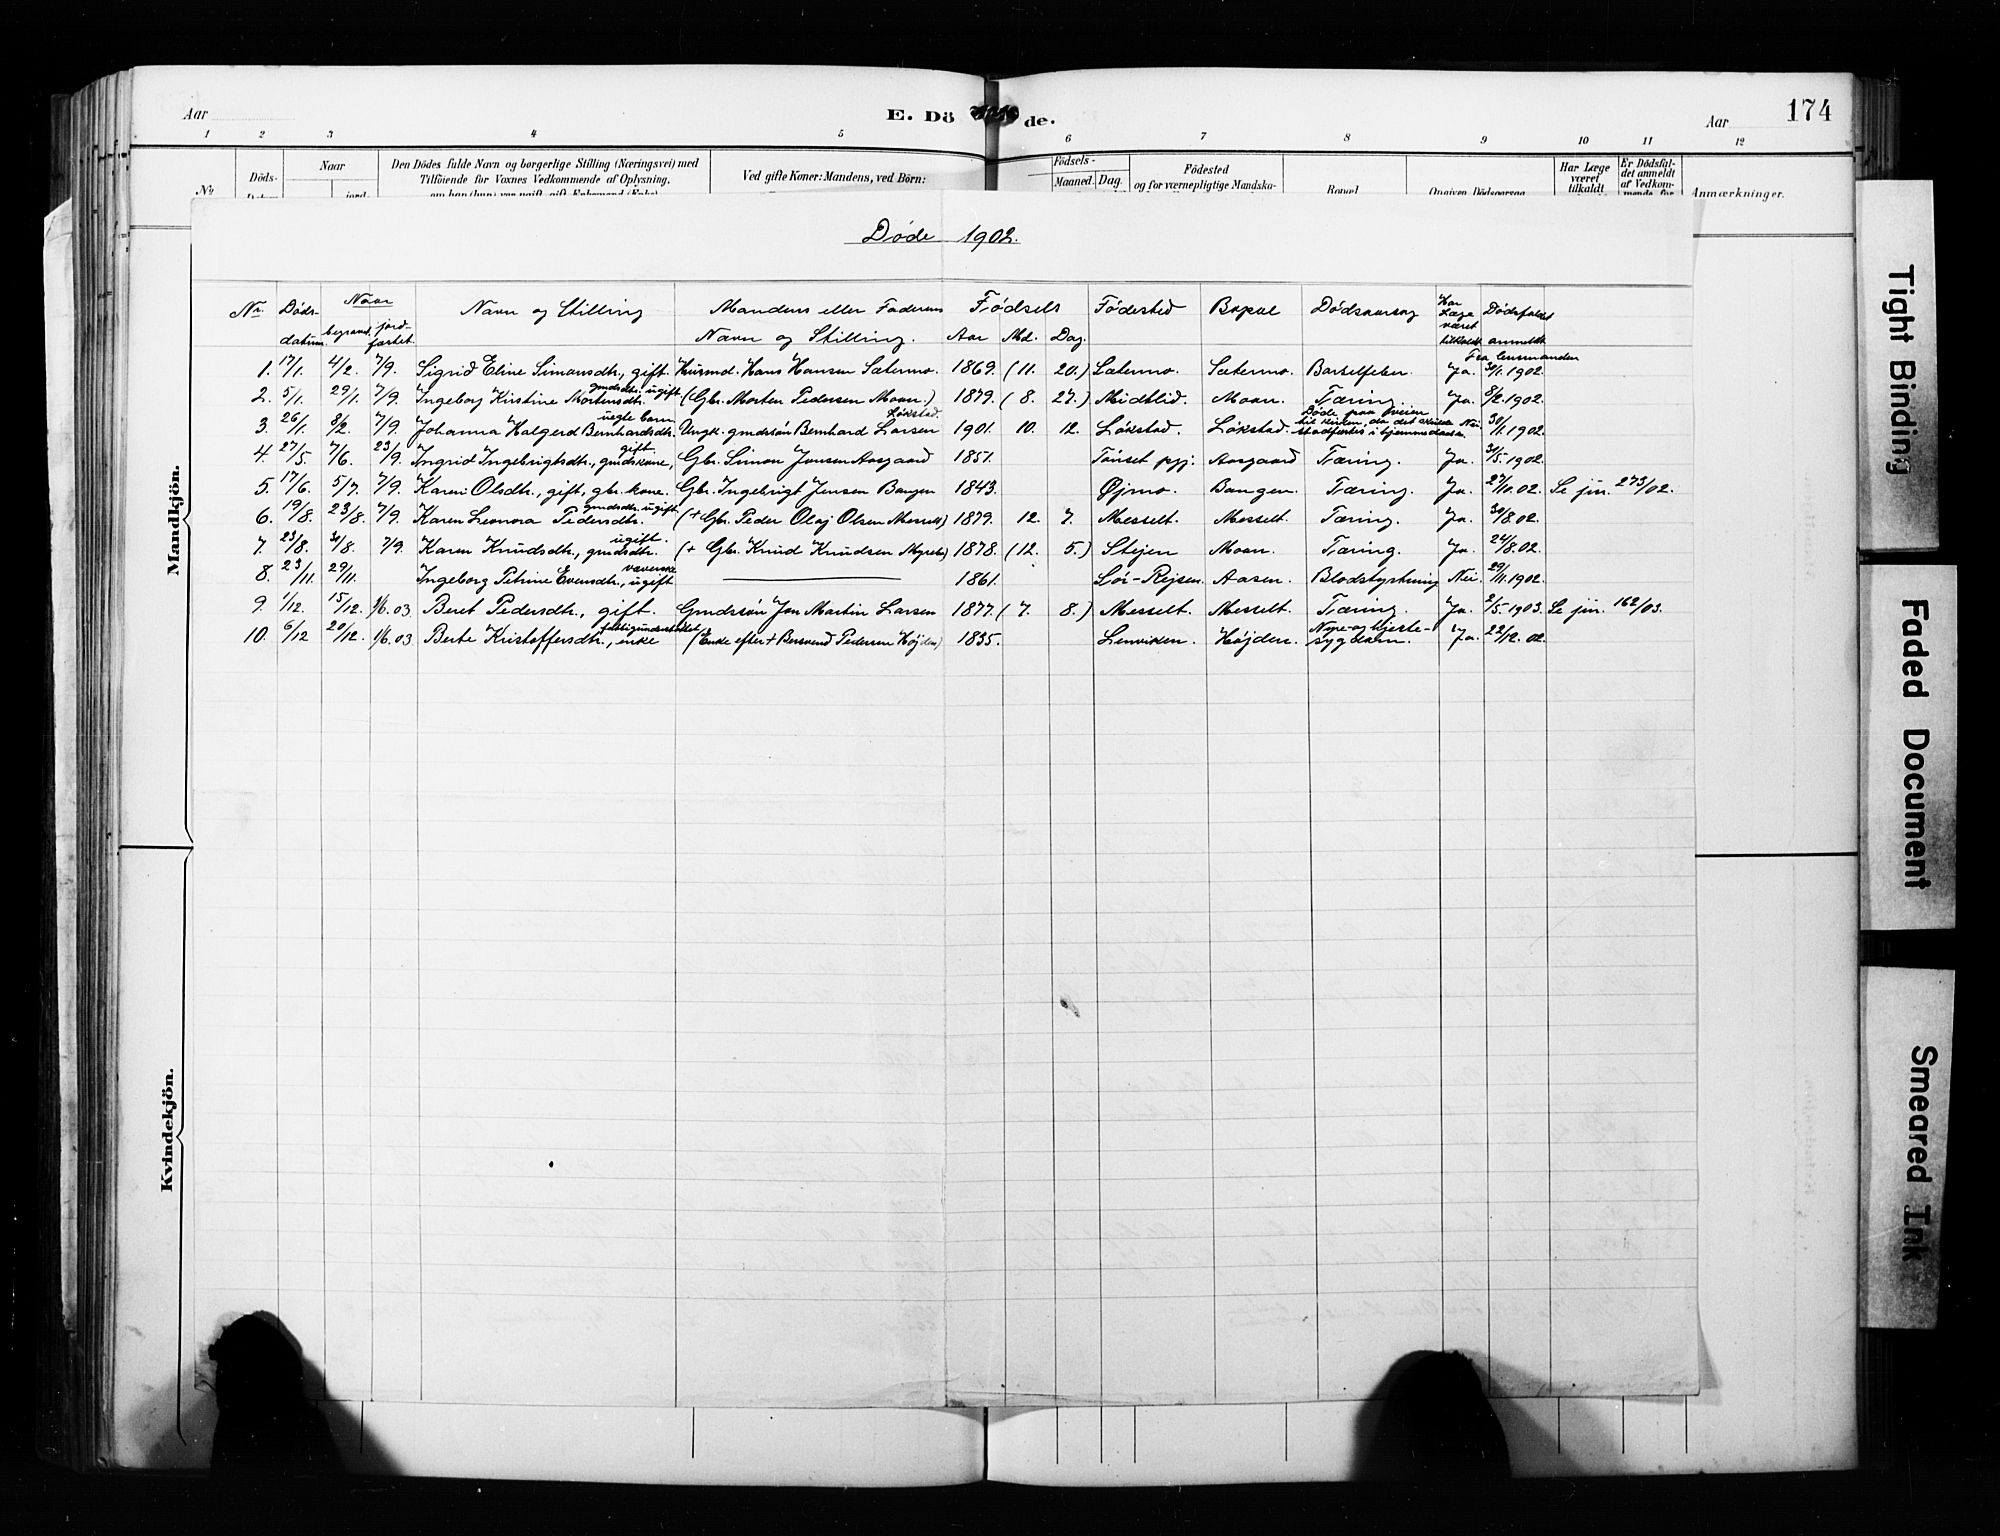 Aar
E. Dö de.
Aar
174
1 2 3 4 5 6 7 8 9 10 11 12
No
Döds-
Naar
jord-
Den Dödes fulde Navn og borgerlige Stilling (Næringsvei) med
Tilföiende for Voxnes Vedkommende af Oplysning,
Ved gifte Koner: Mandens, ved Börn:
Födsels-
Maaned. Dag.
Födested
og for værnepligtige Mandska-
Bopæl
Opgiven Dödsaarsag
Har Læge
været
tilkaldt
Er Dödsfal-
det anmeldt
af Vedkom-
mende for
Anmærkninger.
Døde 1902.
Nr. Døds-datum. Naar begravet. jord-fæstet. Navn og Stilling Mandens eller Faderens Navn og Stilling. Fødsels Aar Md. Dag. Fødested Bopæl Dødsaarsag Har Læge været tilkaldt Dødsfaldet anmeldt
Fra lensmanden
1. 17/1. 4/2. 7/9. Sigrid Eline Simonsdtr., gift. Husmd. Hans Hansen Sætermo. 1869. (11. 20.) Sætermo. Sætermo. Barselfeber. Ja. 30/1. 1902.
2. 5/1. 29/1. 7/9. Ingeborg Kirstine Mortensdtr. gmdsdtr. ugift. (Gbr. Morten Pedersen Moan.) 1879. (8. 27.) Midtlid. Moan. Tæring. Ja. 8/2. 1902.
3. 26/1. 8/2. 7/9. Johanna Halgerd Bernhardsdtr. uegte barn Ungk. gmdssøn Bernhard Larsen Løkstad 1901. 10. 12. Løkstad. Løkstad. Døde paa veien til kirken, da det skulde stadfæstes i hjemmedaaben. Nei. 30/1. 1902.
4. 27/5. 7/6. 23/9. Ingrid Ingebrigtsdtr., gmdskone, gift. Gbr. Simon Jonsen Aasgaard 1851. Tønset pgj. Aasgaard Tæring. Ja. 31/5. 1902.
5. 17/6. 5/7. 7/9. Karen Olsdtr., gift, gbr. kone. Gbr. Ingebrigt Jensen Bangen 1843. Øjmo. Bangen. Tæring. Ja. 27/10. 02. Se jur. 273/02.
6. 19/8. 23/8. 7/9. Karen Leonora Pedersdtr. gmdsdtr. ugift. (+ Gbr. Peder Olaj Olsen Messelt) 1879. 12. 7. Messelt. Messelt. Tæring. Ja. 30/8. 02.
7. 23/8. 30/8. 7/9. Karen Knudsdtr., gmdsdtr. ugift. (+ Gbr. Knud Knudsen Myreb.) 1878. (12. 5.) Stejen Moan. Tæring. Ja. 24/8. 02.
8. 23/11. 29/11. Ingeborg Petrine Evensdtr., ugift væverske 1861. Sør-Rejsen. Aasen. Blodstyrtning Nei. 29/11. 1902.
9. 1/12. 15/12. 1/6. 03. Beret Pedersdtr., gift. Gmdssøn Jon Martin Larsen 1877. (7. 8.) Messelt. Messelt. Tæring. Ja. 2/5. 1903. Se jur. 162/03.
10. 6/12 20/12. 1/6. 03. Berte Kristoffersdtr., enke fattigunderstøttet (Enke efter + Bersvend Pedersen Højden) 1835. Lenviken. Højden. Nyre- og hjerte-sygdom. Ja. 22/12. 02.
Mandkjön.
Kvindekjön.
Tight Binding
Faded Document
Smeared Ink